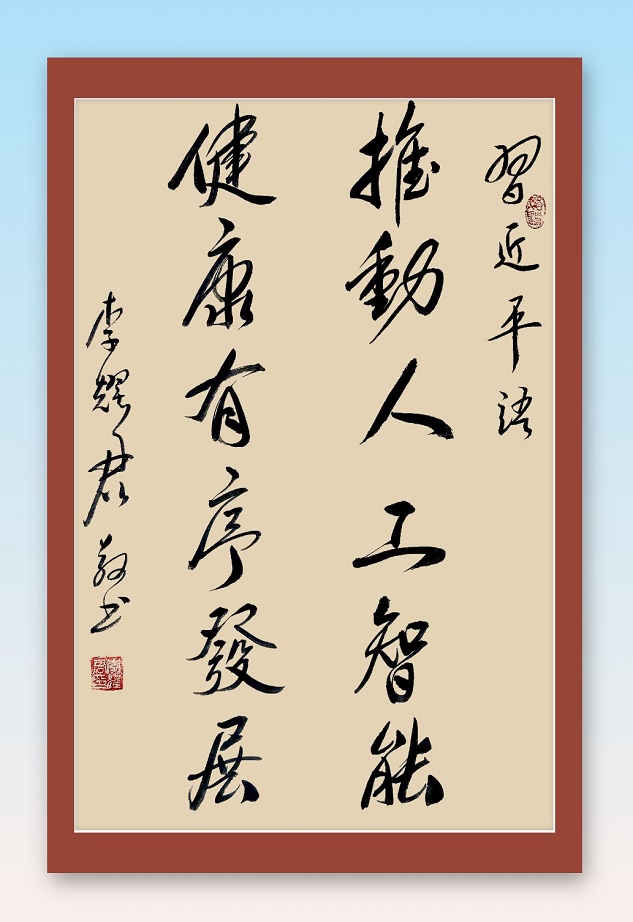 習近平語
推動人工智能
健康有序發展
李耀君敬书